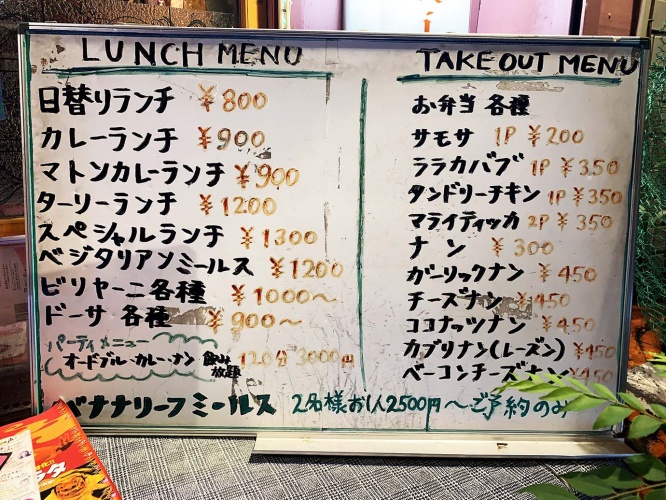 LUNCH MENU
日替りランチ ¥800
カレーランチ ¥900
マトンカレーランチ ¥900
ターリーランチ ¥1200
スペシャルランチ ¥1300
ベジタリアンミールス ¥1200
ビリヤーニ各種 ¥1000〜
ドーサ 各種 ¥900〜
パーティメニュー
オードブル・カレー・ナン 飲み放題 120分 3000円
バナナリーフミールス 2名様お1人2500円〜ご予約のみ
TAKE OUT MENU
お弁当 各種
サモサ 1P ¥200
ララカバブ 1P ¥350
タンドリーチキン 1P ¥350
マライティッカ 2P ¥350
ナン ¥300
ガーリックナン ¥450
チーズナン ¥450
ココナッツナン ¥450
カブリナン(レーズン) ¥450
ベーコンチーズナン ¥450